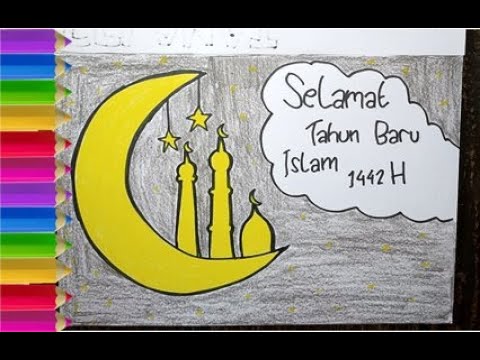 Selamat
Tahun Baru
Islam 1442 H